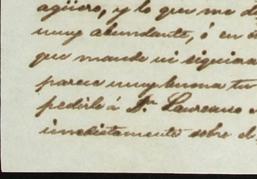 agüero, y lo que me d
muy abundante, ó en
que mande ni siquiera
parece muy buena tu
pedirle á Dn Laureano
inmediatamente sobre el